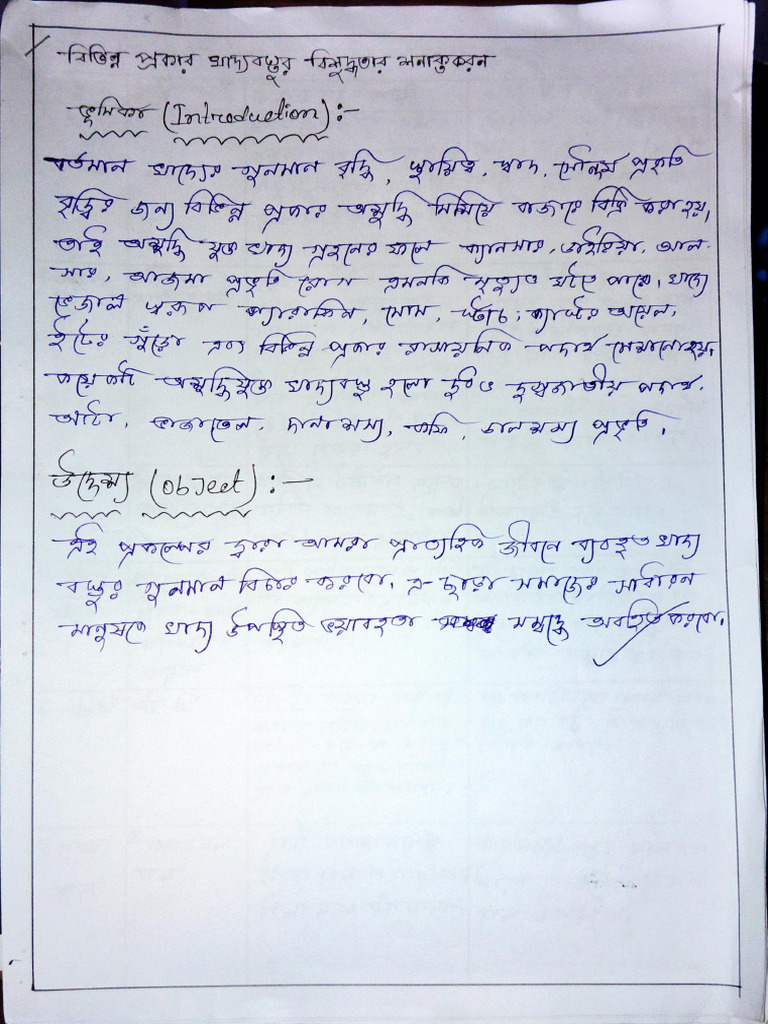 বিভিন্ন প্রকার খাদ্যবস্তুর বিশুদ্ধতার শনাক্তকরন
ভূমিকা (Introduction) :-
বর্তমান খাদ্যের গুনমান বৃদ্ধি, স্থায়িত্ব, স্বাদ, সৌন্দর্য প্রকৃতি
বৃদ্ধির জন্য বিভিন্ন প্রকার অশুদ্ধি মিশিয়ে বাজারে বিক্রি করা হয়,
তাই অশুদ্ধি যুক্ত খাদ্য গ্রহনের ফলে ক্যানসার, ডাইরিয়া, আল-
সার, আজমা প্রভৃতি রোগ এমনকি মৃত্যুও ঘটতে পারে। খাদ্যে
ভেজাল স্বরূপ প্যারাফিন, মোম, স্টার্চ, ক্যাস্টর অয়েল,
ইটের গুঁড়ো এবং বিভিন্ন প্রকার রাসায়নিক পদার্থ মেশানো হয়,
কয়েকটি অশুদ্ধিযুক্ত খাদ্যবস্তু হলো দুধ ও দুগ্ধজাতীয় পদার্থ,
আটা, ভাজাতেল, দানাশস্য, কফি, ডালশস্য প্রভৃতি।
উদ্দেশ্য (Object) :-
এই প্রকল্পের দ্বারা আমরা প্রাত্যহিক জীবনে ব্যবহৃত খাদ্য
বস্তুর গুনমান বিচার করবো, এ-ছাড়া সমাজের সাধারন
মানুষকে খাদ্য উপস্থিত ভয়াবহতা সম্বন্ধে অবহিত করবো।